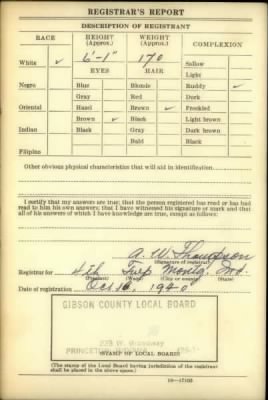 REGISTRAR'S REPORT
DESCRIPTION OF REGISTRANT
RACE HEIGHT (Approx.) WEIGHT (Approx.) COMPLEXION
White ✓ 6'-1" 170 Sallow
EYES HAIR Light
Negro Blue Blonde Ruddy ✓
Gray Red Dark
Oriental Hazel Brown ✓ Freckled
Brown ✓ Black Light brown
Indian Black Gray Dark brown
Bald Black
Filipino
Other obvious physical characteristics that will aid in identification
I certify that my answers are true; that the person registered has read or has had
read to him his own answers; that I have witnessed his signature or mark and that
all of his answers of which I have knowledge are true, except as follows:
A. W. Thompson
(Signature of registrar)
Registrar for 4th Twp Montg. Ind.
(Precinct) (City or county) (State)
Date of registration Oct 16, 1940
GIBSON COUNTY LOCAL BOARD
W. Broadway
PRINCETON, INDIANA
(STAMP OF LOCAL BOARD)
(The stamp of the Local Board having jurisdiction of the registrant
shall be placed in the above space.)